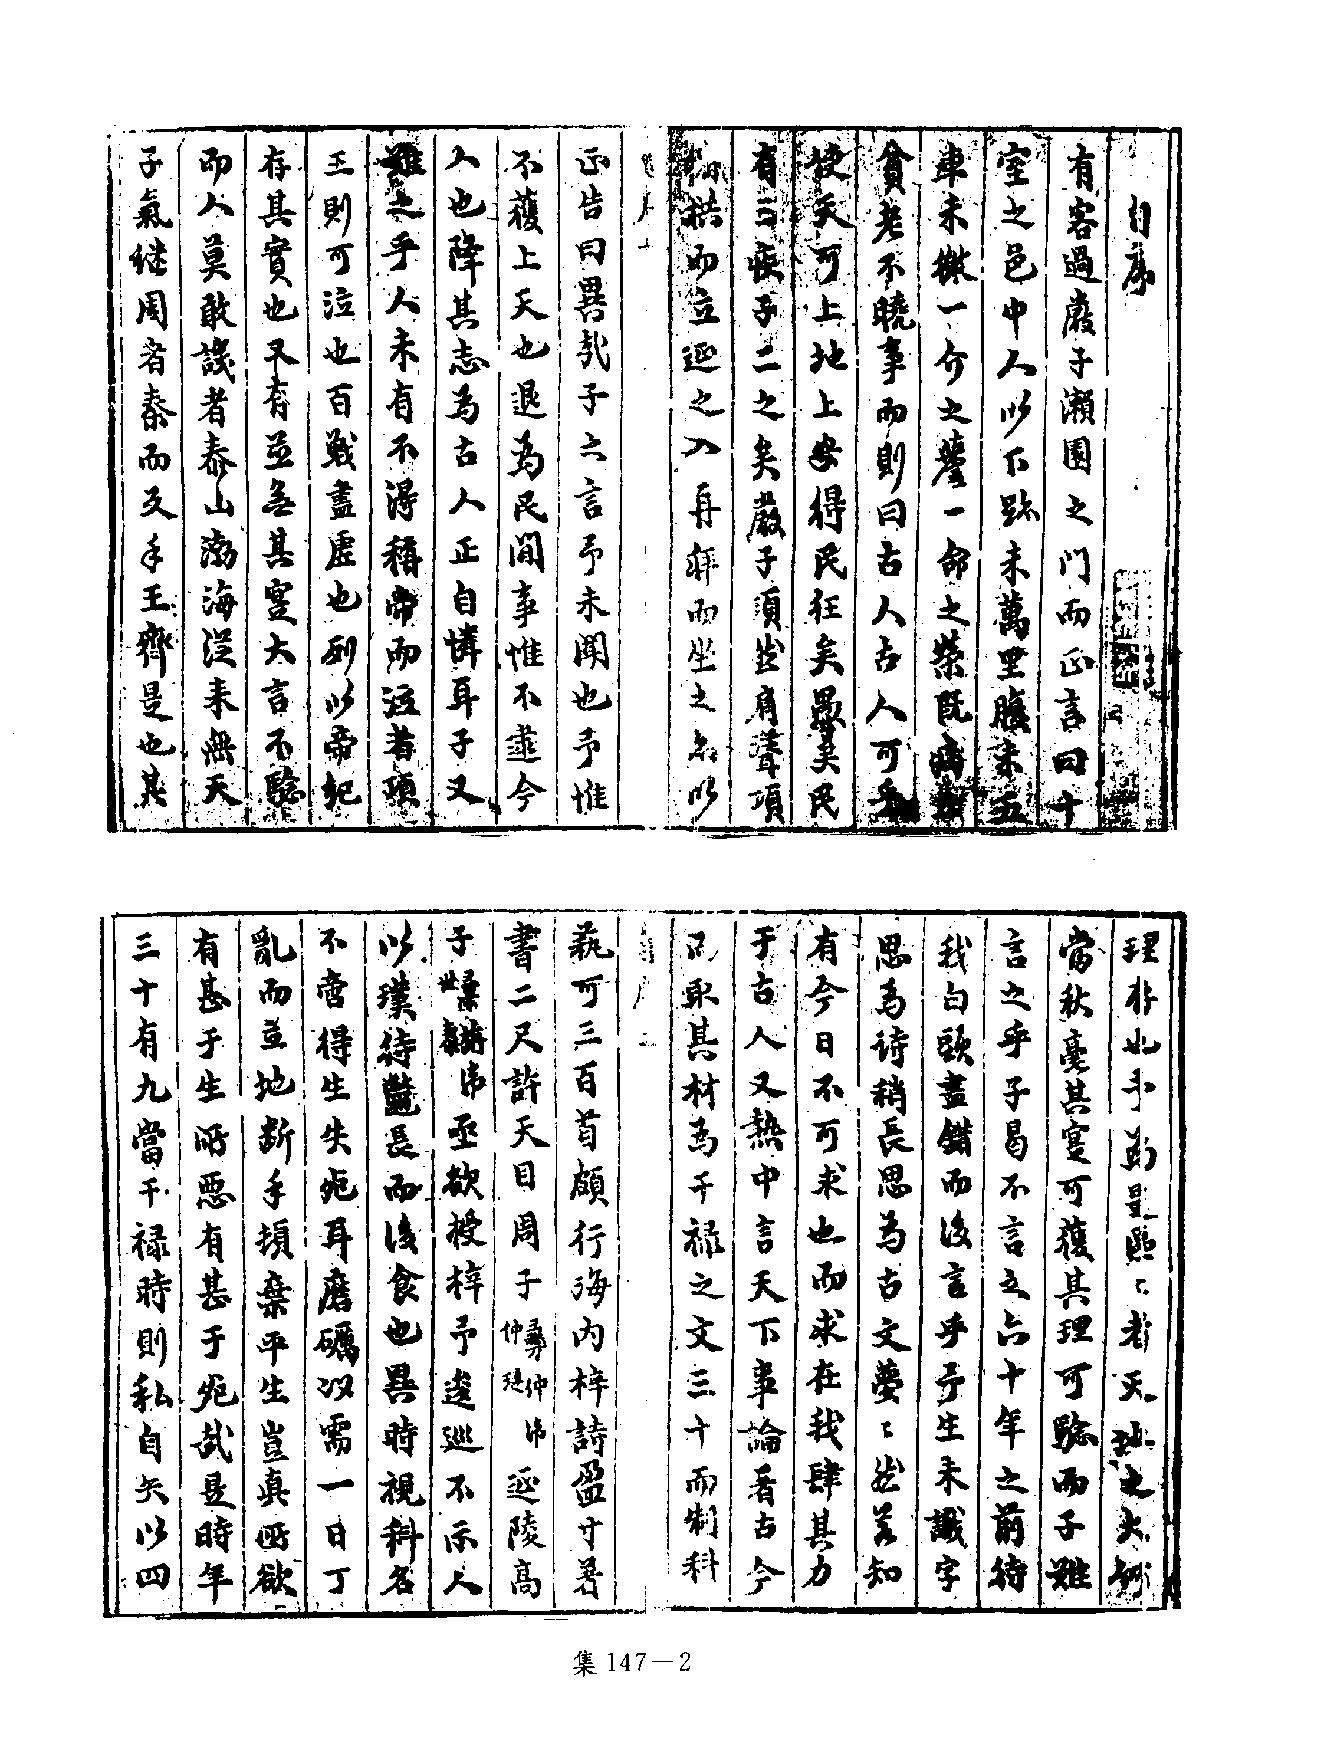 自序
有客過嚴子瀨園之門而正言曰十
室之邑中人以下跡未萬里牘未五
車未徵一介之譽一命之榮既病
貧老不曉事而則曰古人古人可乎
使天可上地上安得民狂矣愚矣民
有三疾子二之矣嚴子頭岔肩聳項
拱而立延之入再拜而坐之名以
正告曰異哉子之言予未聞也予惟
不獲上天也退為民間事惟不逮今
人也降其志為古人正自憐耳子又
難之乎人未有不得稱帝而泣者項
王則可泣也百戰盡虛也列以帝紀
存其實也又有並無其寔大言不驗
而人莫敢譏者泰山渤海從來無天
子氣継周者秦而文手王齊是也其
理非也乎為是熙〻者天地之大
當秋毫其寔可獲其理可驗而子難
言之乎子曷不言之六十年之前待
我白頭盡錯而後言乎予生未識字
思為詩稍長思為古文夢〻然若知
有今日不可求也而求在我肆其力
于古人又熱中言天下事論著古今
而取其材為干禄之文三十而制科
蓺可三百首頗行海内梓詩盈寸著
書二尺許天目周子仲彝仲璉 延陵高
子 亟欲授梓予逡巡不示人
以璞待 長而後食也異時視科名
不啻得生失死耳磨礪以需一日丁
亂而並地斷手損棄平生豈真所欲
有甚于生所惡有甚于死哉是時年
三十有九當干禄時則私自矢以四
集147－2